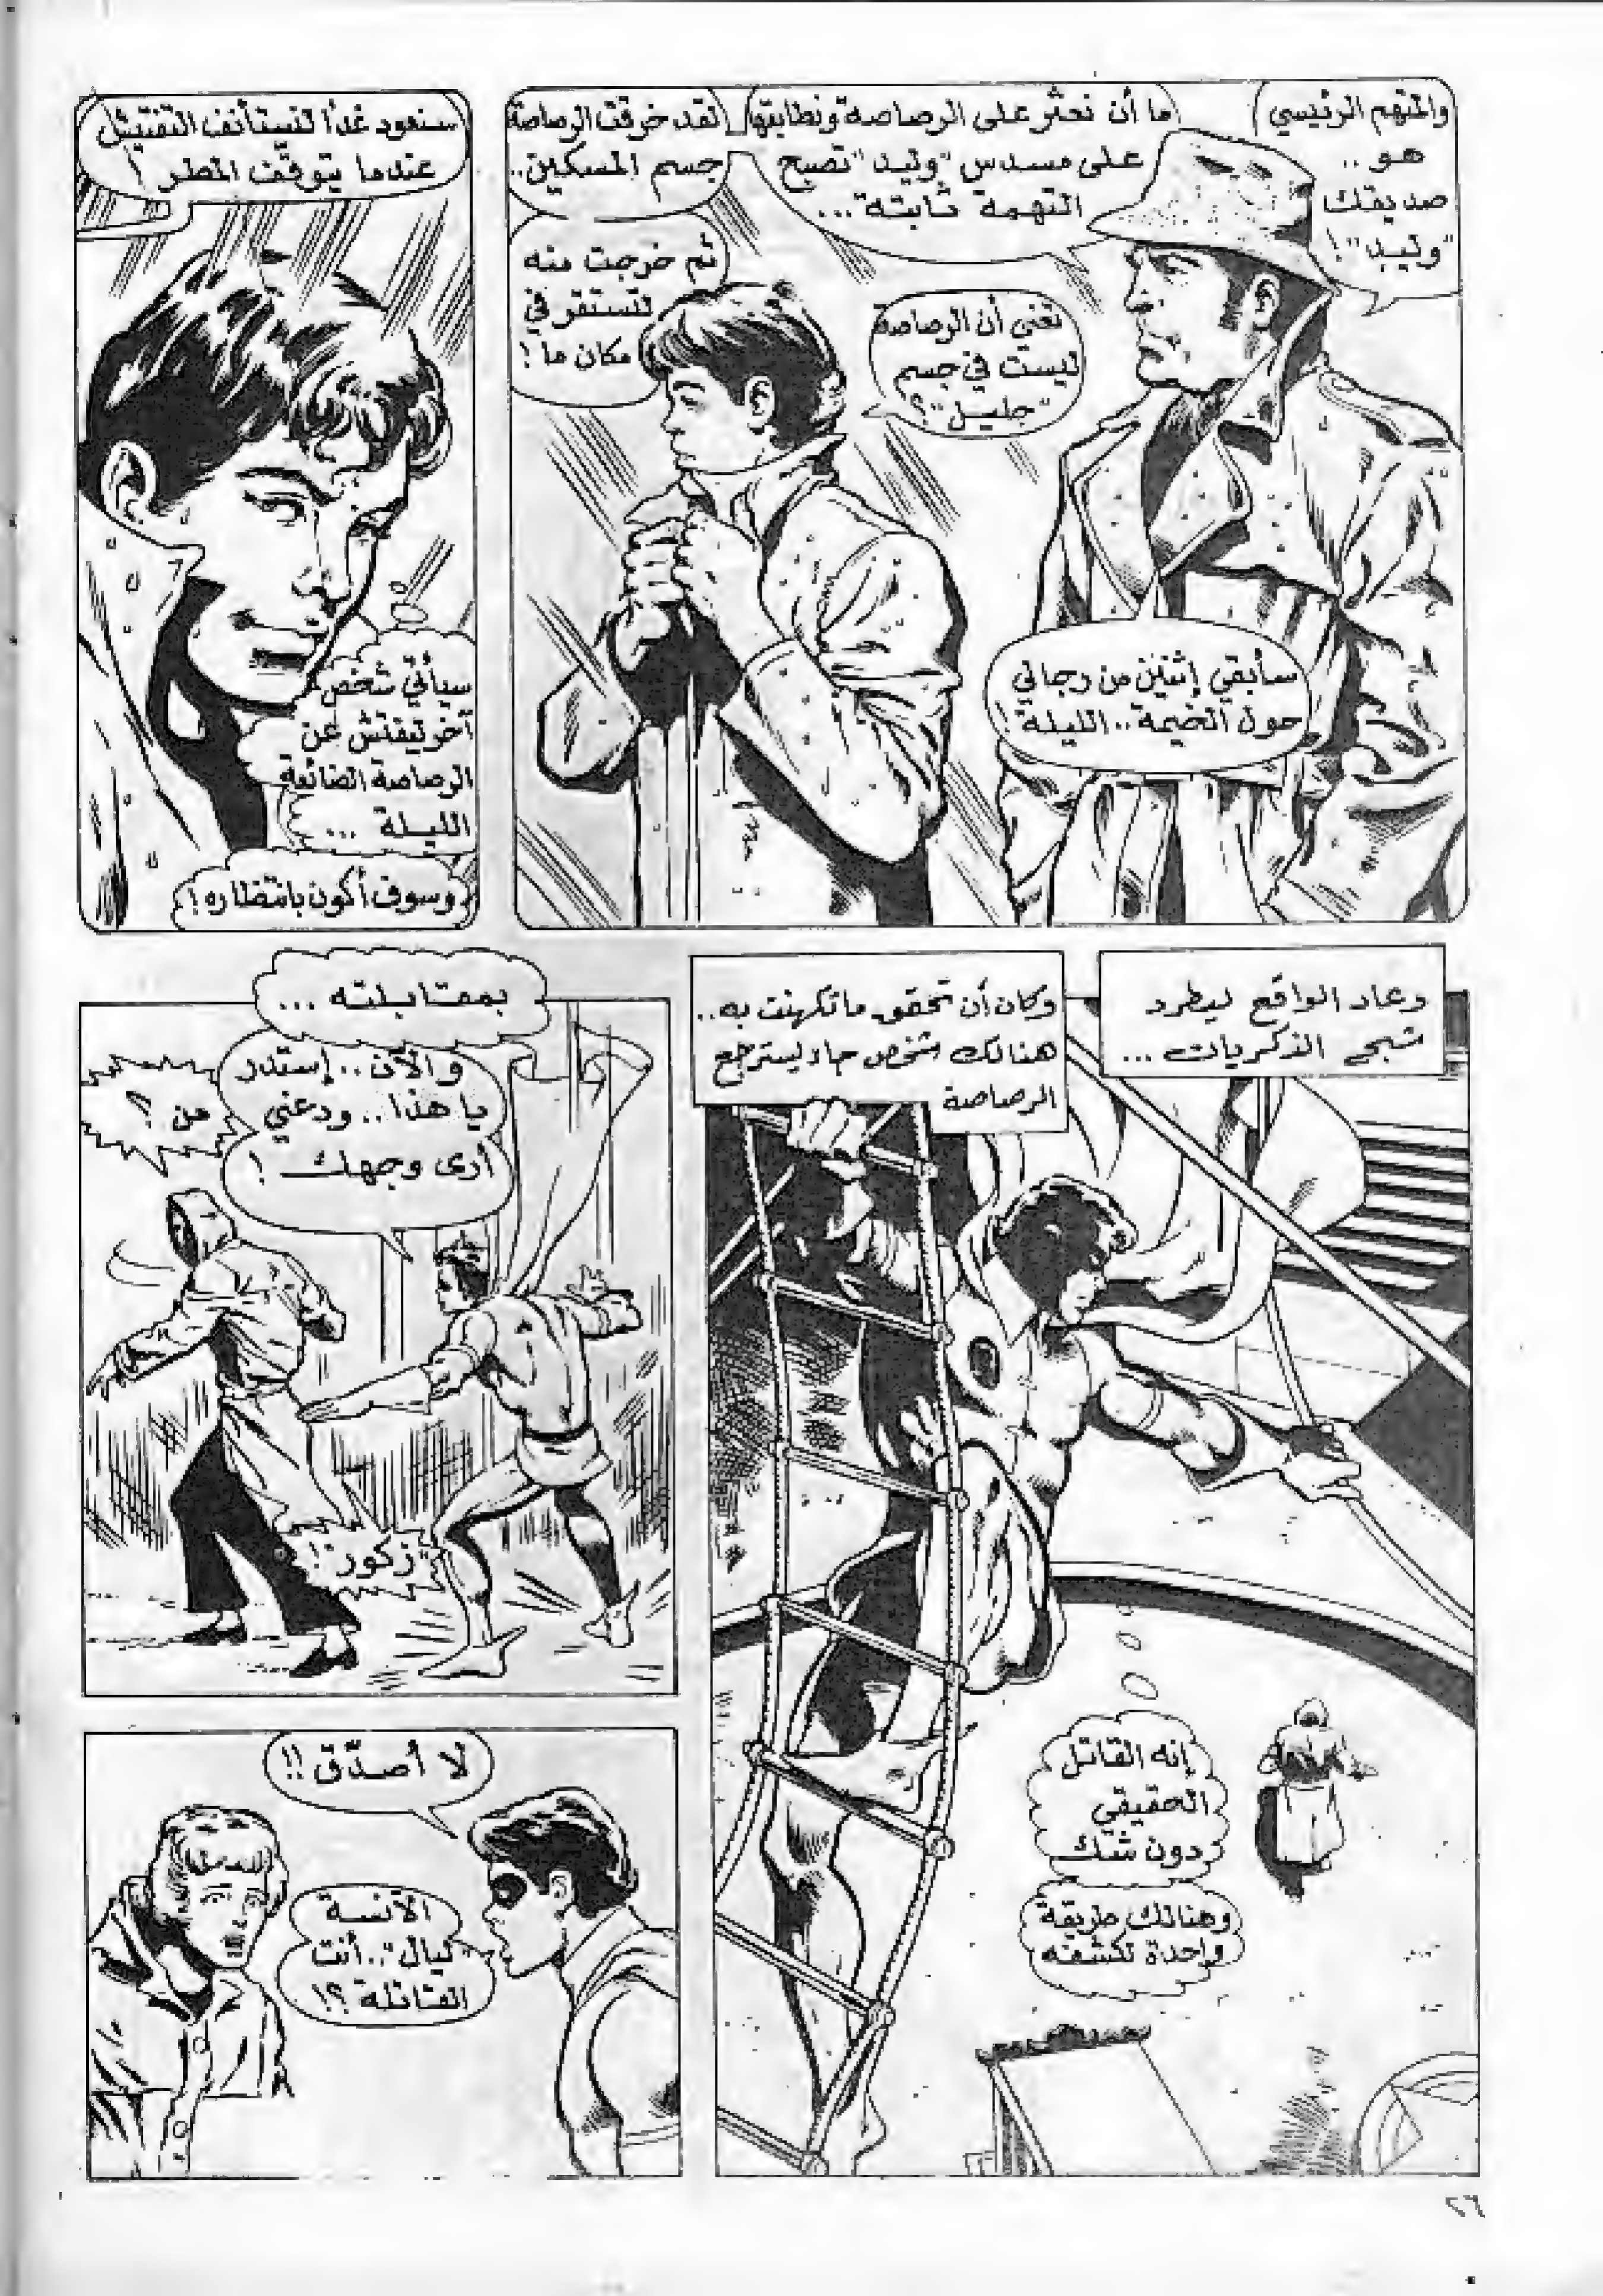 والمتهم الرئيسي
هو ..
صديقك
"وليد"!
ما أن نعثر على الرصاصة ونطابقها
على مسدس "وليد" تصبح
التهمة ثابتة...
تعني أن الرصاصة
ليست في جسم
"جليل"؟
لقد خرقت الرصاصة
جسم المسكين..
ثم خرجت منه
لتستقر في
مكان ما!
سأبقي إثنين من رجالي
حول الخيمة.. الليلة!
سنعود غداً لنستأنف التفتيش
عندما يتوقف المطر!
سيأتي شخص
آخر ليفتش عن
الرصاصة الضائعة
الليلة ...
وسوف أكون بانتظاره!
وعاد الواقع ليطرد
شبحي الذكريات ...
وكان أن تحقق ما تكهنت به..
هنالك شخص جاء ليسترجع
الرصاصة
إنه القاتل
الحقيقي
دون شك
وهنالك طريقة
واحدة لكشفه
بمقابلته ...
والآن.. إستدر
يا هذا.. ودعني
أرى وجهك!
من؟
"زكور"!
لا أصدّق!!
الآنسة
"ليال".. أنت
القاتلة؟!
٢٦